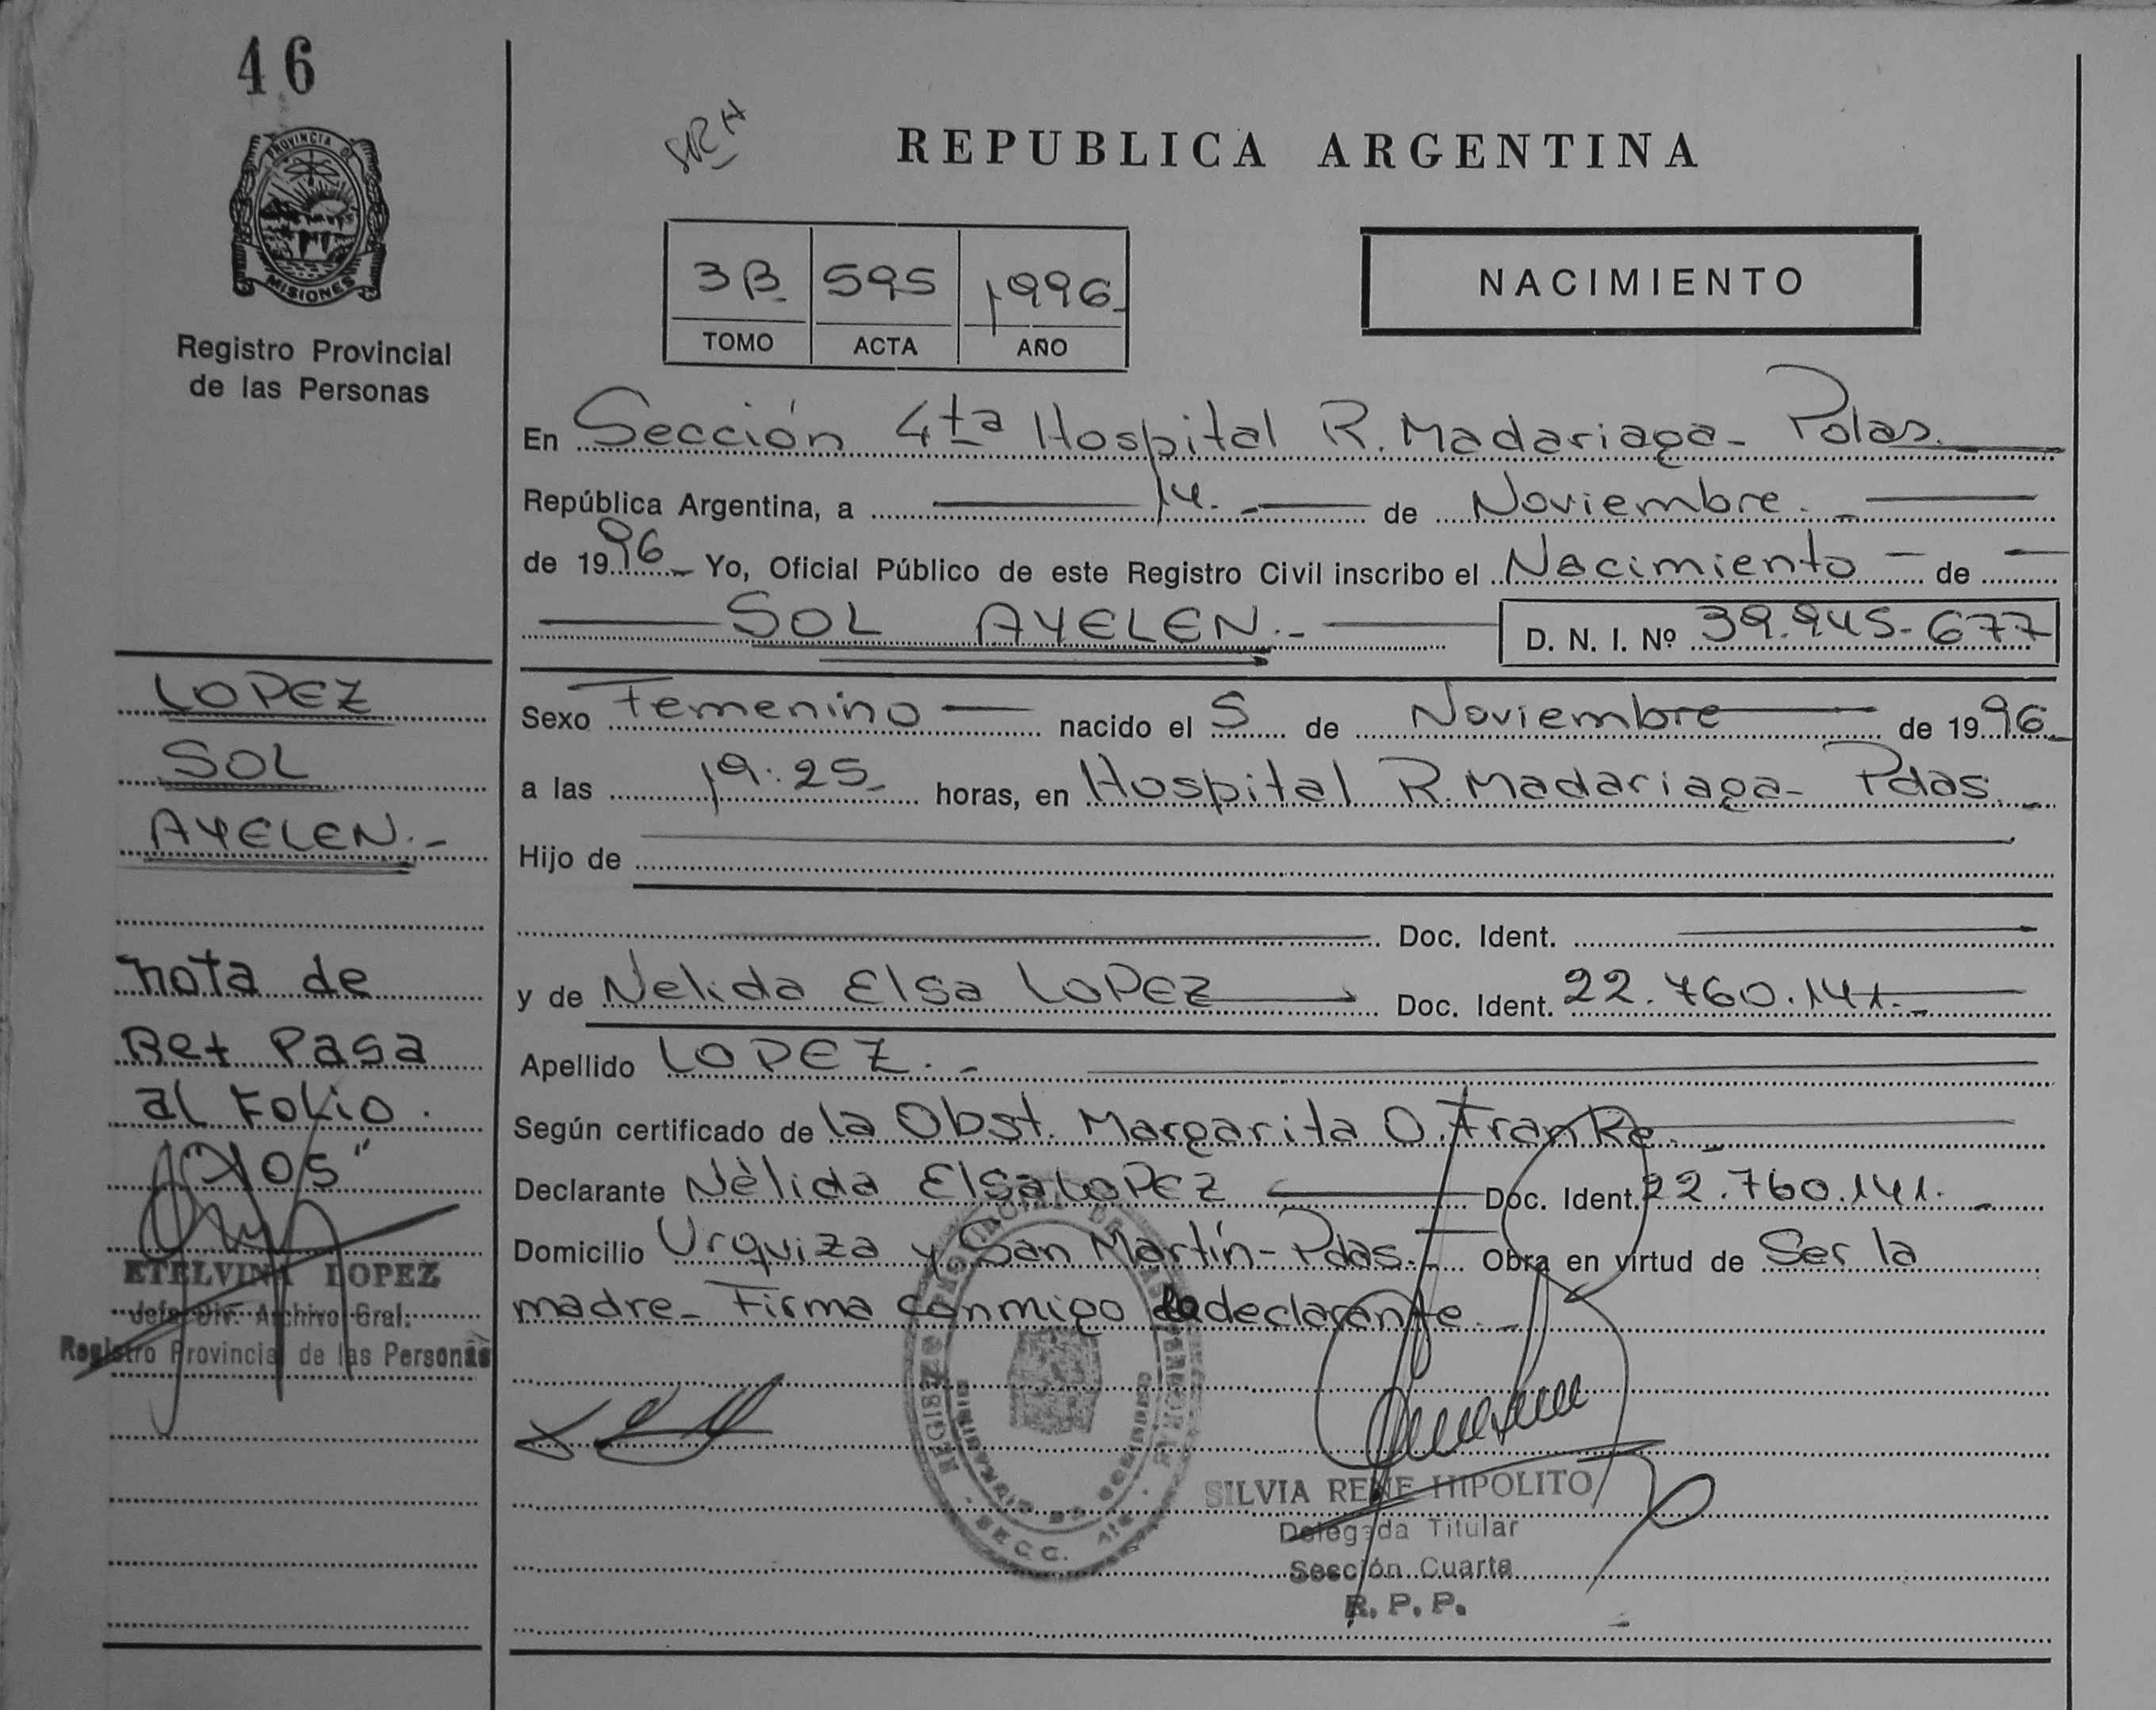 46
PROVINCIA DE
MISIONES
Registro Provincial
de las Personas
LOPEZ
SOL
AYELEN.-
nota de
Ret Pasa
al Folio.
ETELVINA LOPEZ
Jefe Div. Archivo Gral.
Registro Provincial de las Personas
REPUBLICA ARGENTINA
3B 595 1996
TOMO ACTA AÑO
NACIMIENTO
En Sección 4ta Hospital R. Madariaga- Pdas.
República Argentina, a 14.- de Noviembre.-
de 1996- Yo, Oficial Público de este Registro Civil inscribo el Nacimiento - de -
SOL AYELEN.- D. N. I. Nº 39.945.677
Sexo Femenino nacido el 5 de Noviembre de 1996-
a las 19:25- horas, en Hospital R. Madariaga- Pdas.-
Hijo de
Doc. Ident.
y de Nelida Elsa LOPEZ Doc. Ident. 22.760.141.-
Apellido LOPEZ.-
Según certificado de la Obst. Margarita O. Franke.-
Declarante Nélida Elsa LOPEZ Doc. Ident. 22.760.141.-
Domicilio Urquiza y San Martín- Pdas.- Obra en virtud de Ser la
madre- Firma conmigo la declarante.-
SILVIA RENE HIPOLITO
Delegada Titular
Sección Cuarta
R. P. P.